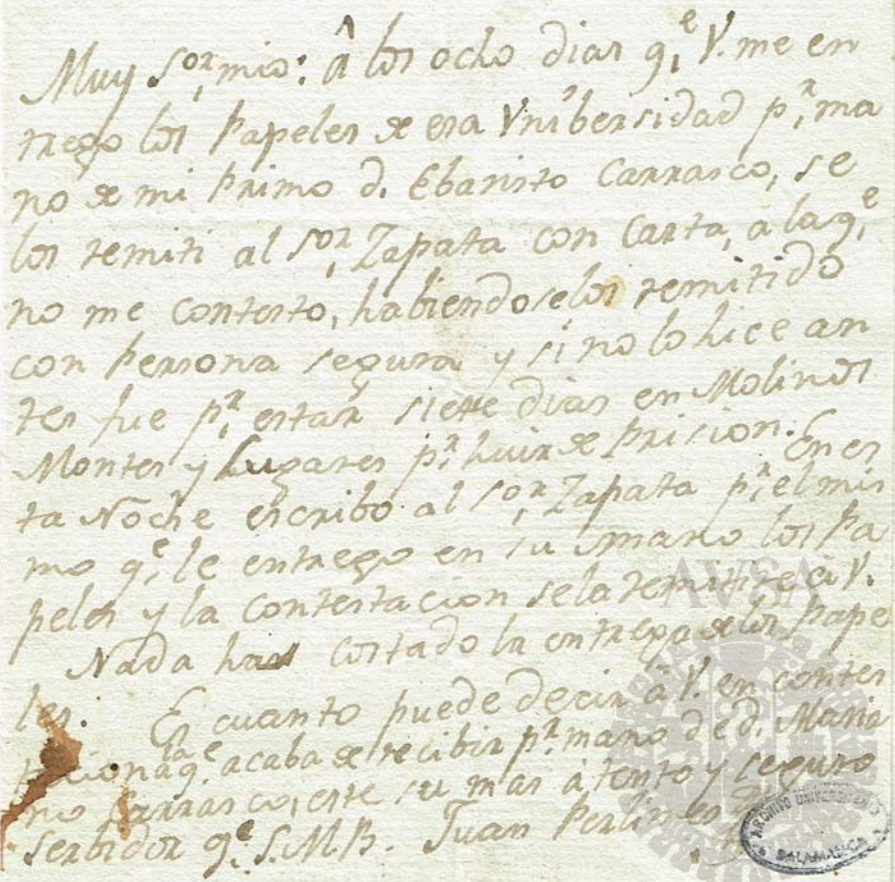 Muy Sor, mio: â los ocho dias q,e V. me en
trego los Papeles de esa Vnibersidad p,r ma
no de mi Primo d. Ebaristo Carrasco, se
los remiti al Sor, Zapata con Carta, a la q,e
no me contesto, habiendoselos remitido
con Persona segura y si no lo hice an
tes fue p,r estar siette dias en Molinos
Montes y Lugares p,r huir de Prision. En es
ta Noche escribo al Sor, Zapata p,r el mis
mo q,e le entrego en su mano los Pa
peles y la contestacion se la remitire à V.
Nada han costado la entrega de los Pape
les. Es cuanto puede decir à V. en contes
q,e acaba de recibir p,r mano de d. Maria
no Carrasco, este su mas atento y seguro
Serbidor q,e S.M.B. Juan
AVSA
ARCHIVO UNIVERSITARIO
SALAMANCA